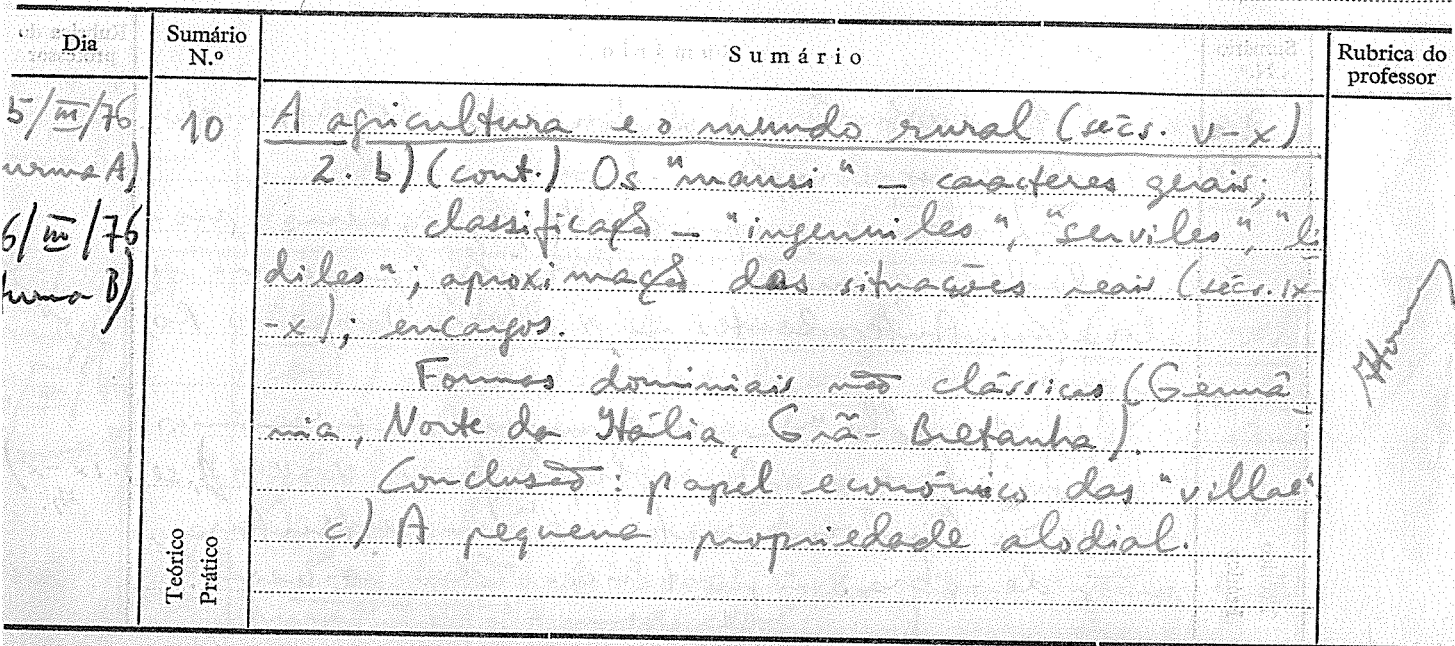 Dia
Sumário N.º
Sumário
Rubrica do professor
5/III/76
10
A agricultura e o mundo rural (sécs. V-X)
urma A)
2. b) (cont.) Os "mansi" - caracteres gerais;
6/III/76
classificação - "ingenuiles", "serviles", "li
turma B)
diles"; aproximação das situações reais (sécs. IX-
-X); encargos.
Formas dominiais não clássicas (Germâ
nia, Norte da Itália, Grã-Bretanha).
Conclusão: papel económico das "villae"
c) A pequena propriedade alodial.
Teórico
Prático